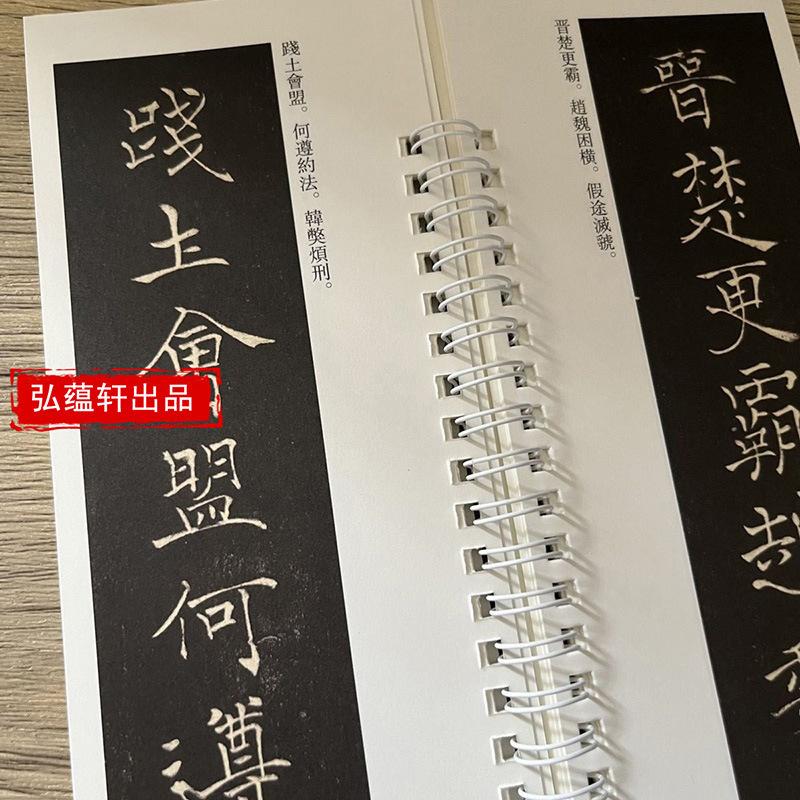 晋楚更霸。趙魏困橫。假途滅虢。
晉楚更霸趙
踐土會盟。何遵約法。韓弊煩刑。
踐土會盟何遵
弘蕴轩出品